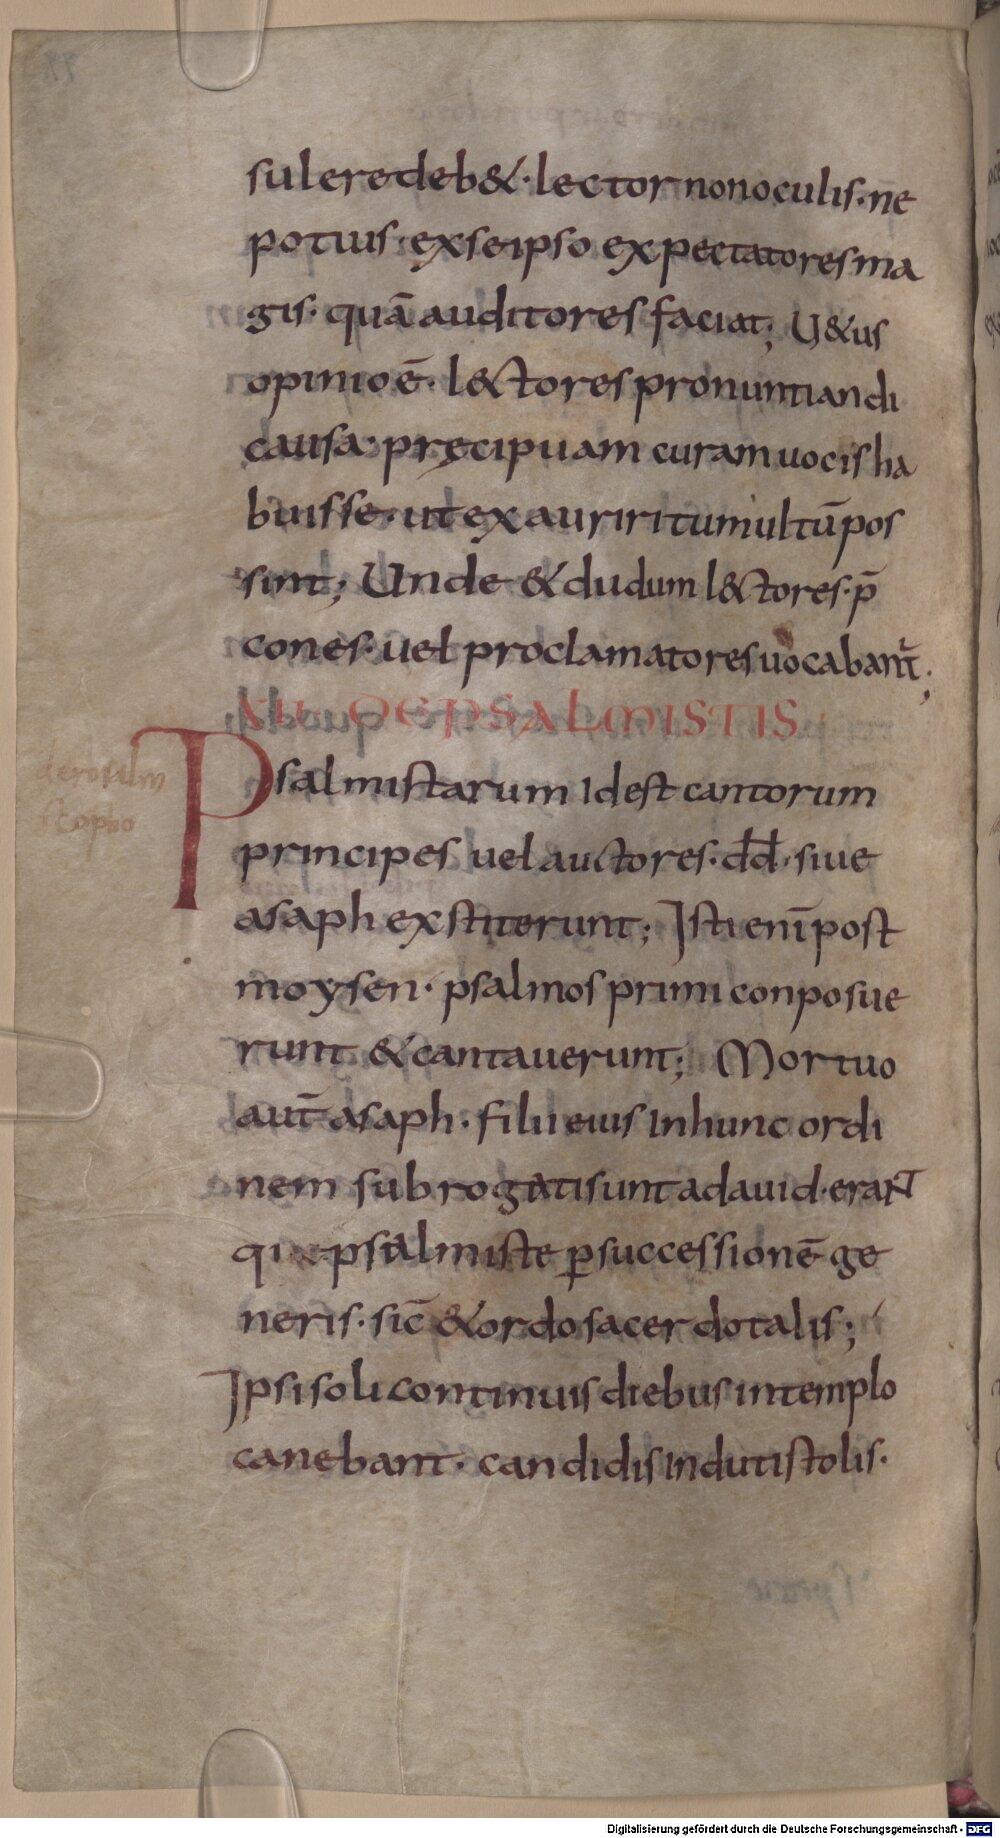 sulere deb&· lector non oculis· ne
potius· ex seipso expectatores ma
gis· quā auditores faciat; U&us
opinio ē· l&tores pronuntiandi
causa· pręcipuam curam uocis ha
buisse· ut exauriri tumultū pos
sint; Unde & dudum l&tores· p̄
cones· uel proclamatores uocabant̄;
XII· DE PSALMISTIS
Psalmistarum idest cantorum
principes uel auctores· dd̄· siue
asaph exstiterunt; Isti enī post
moysen· psalmos primi conposue
runt & cantauerunt; Mortuo
aut̄ asaph· filii eius in hunc ordi
nem subrogati sunt a dauid· erant
qui psalmiste ꝑ successionē ge
neris· sic̄ & ordo sacerdotalis;
Ipsi soli continuis diebus in templo
canebant· candidis induti stolis·
Digitalisierung gefördert durch die Deutsche Forschungsgemeinschaft - DFG